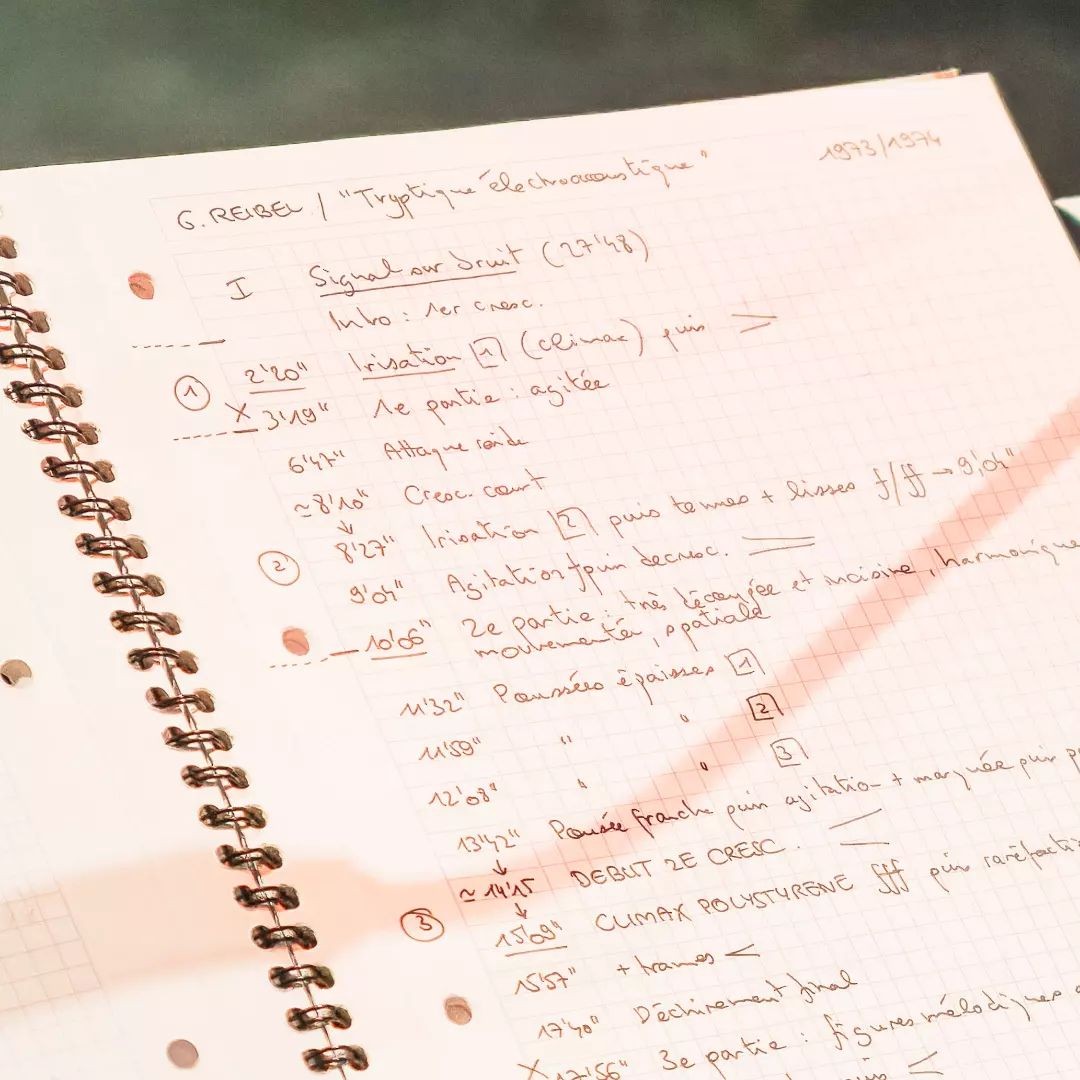 1973/1974
G. REIBEL / "Tryptique électroacoustique"
I Signal sur bruit (27'48)
Intro : 1er cresc.
① 2'20" Irisation 1 (climax) puis >
X 3'19" 1e partie : agitée
6'47" Attaque raide
≃ 8'10" Cresc. court
↓
② 8'27" Irisation 2 puis tenues + lisses f/ff → 9'04"
9'04" Agitation puis decresc.
10'06" 2e partie : très découpée et incisive, harmonique
mouvementée, spatiale
11'32" Poussées épaisses 1
11'59" " " 2
12'08" " " 3
13'42" Poussée franche puis agitation + marquée puis
↓
≃ 14'15 DEBUT 2E CRESC.
↓
③ 15'09" CLIMAX POLYSTYRENE fff puis
15'57" + trames <
17'40" Déchirement final
X 17'56" 3e partie : figures mélodiques
puis <